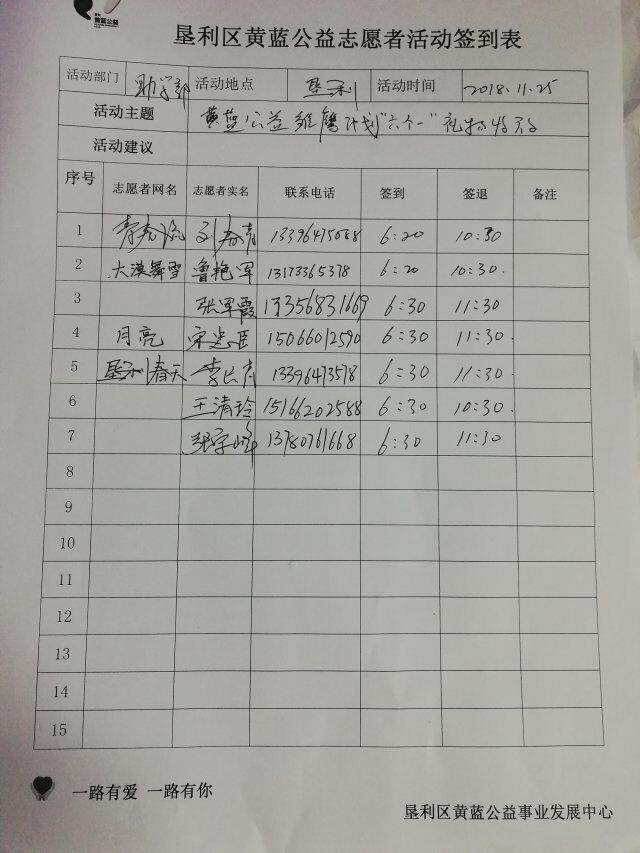 黄蓝公益
垦利区黄蓝公益志愿者活动签到表
活动部门 助学部 活动地点 垦利 活动时间 2018.11.25
活动主题 黄蓝公益雏鹰计划“六个一”礼物发放
活动建议
序号 志愿者网名 志愿者实名 联系电话 签到 签退 备注
1 13396475088 6:20 10:30
2 大漠舞雪 鲁艳军 13173365378 6:20 10:30.
3 张军霞 13356831669 6:30 11:30
4 月亮 宋忠臣 15066012590 6:30 11:30.
5 垦利春天 李长青 13396473578 6:30 11:30
6 王清玲 15166202588 6:30 10:30.
7 张宗峰 13780761668 6:30 11:30
8
9
10
11
12
13
14
15
一路有爱 一路有你
垦利区黄蓝公益事业发展中心